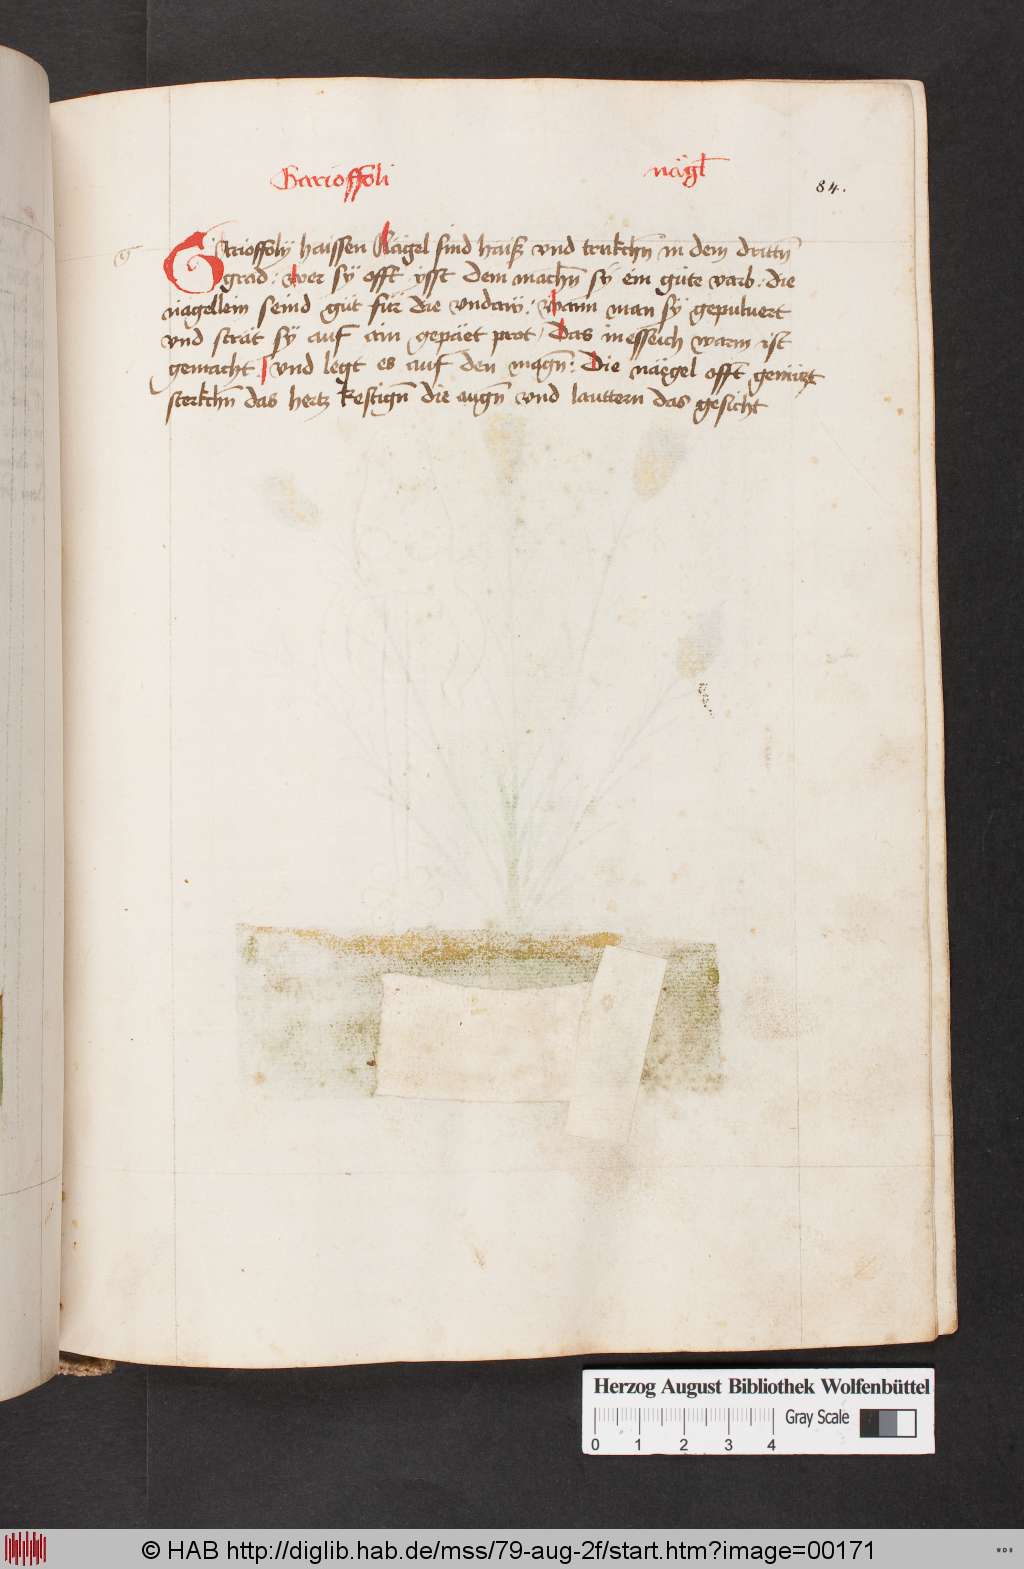 Garioffoli nägl̄
84.
g
Garioffoly haissen Nägel sind haiß vnd trukchn̄ in dem drittn̄
grad : wer sy offt ysst dem machn̄ sy ein gute varb . die
nägellein seind gut für die vndaw : wann man sy gepuluert
vnd strät sy auf ain gepäet prot / Das in esseich warm ist
gemacht / vnd legt es auf den magn̄ : Die näegel offt genützt
sterkchn̄ das hertz kestign̄ die augn̄ vnd lauttern das gesicht
Herzog August Bibliothek Wolfenbüttel
Gray Scale
0 1 2 3 4
© HAB http://diglib.hab.de/mss/79-aug-2f/start.htm?image=00171